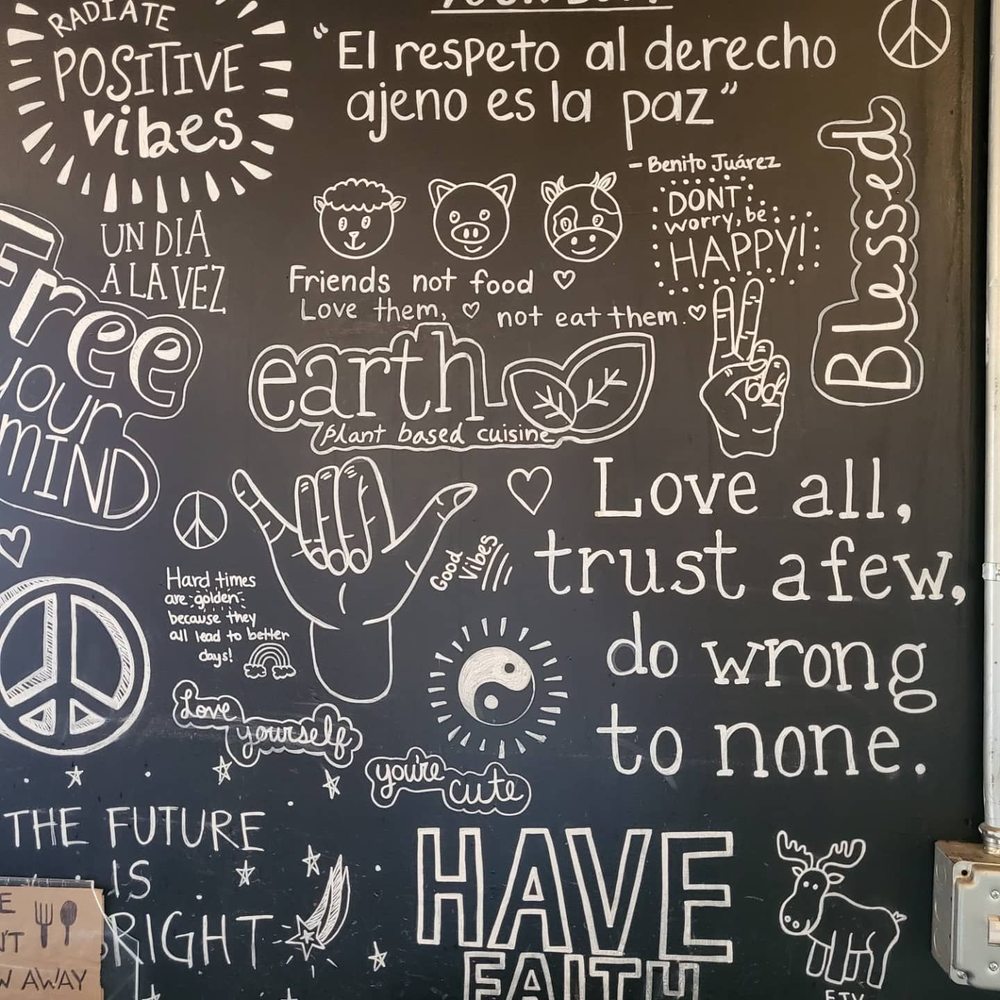 RADIATE
POSITIVE
vibes
"El respeto al derecho
ajeno es la paz"
- Benito Juárez
UN DIA
A LA VEZ
Friends not food
Love them, not eat them.
DONT
worry, be
HAPPY!
Blessed
Free
your
MIND
earth
plant based cuisine
Love all,
trust a few,
do wrong
to none.
Good
Vibes
Hard times
are golden
because they
all lead to better
days!
Love
yourself
you're
cute
THE FUTURE
IS
BRIGHT
HAVE
FAITH
AWAY